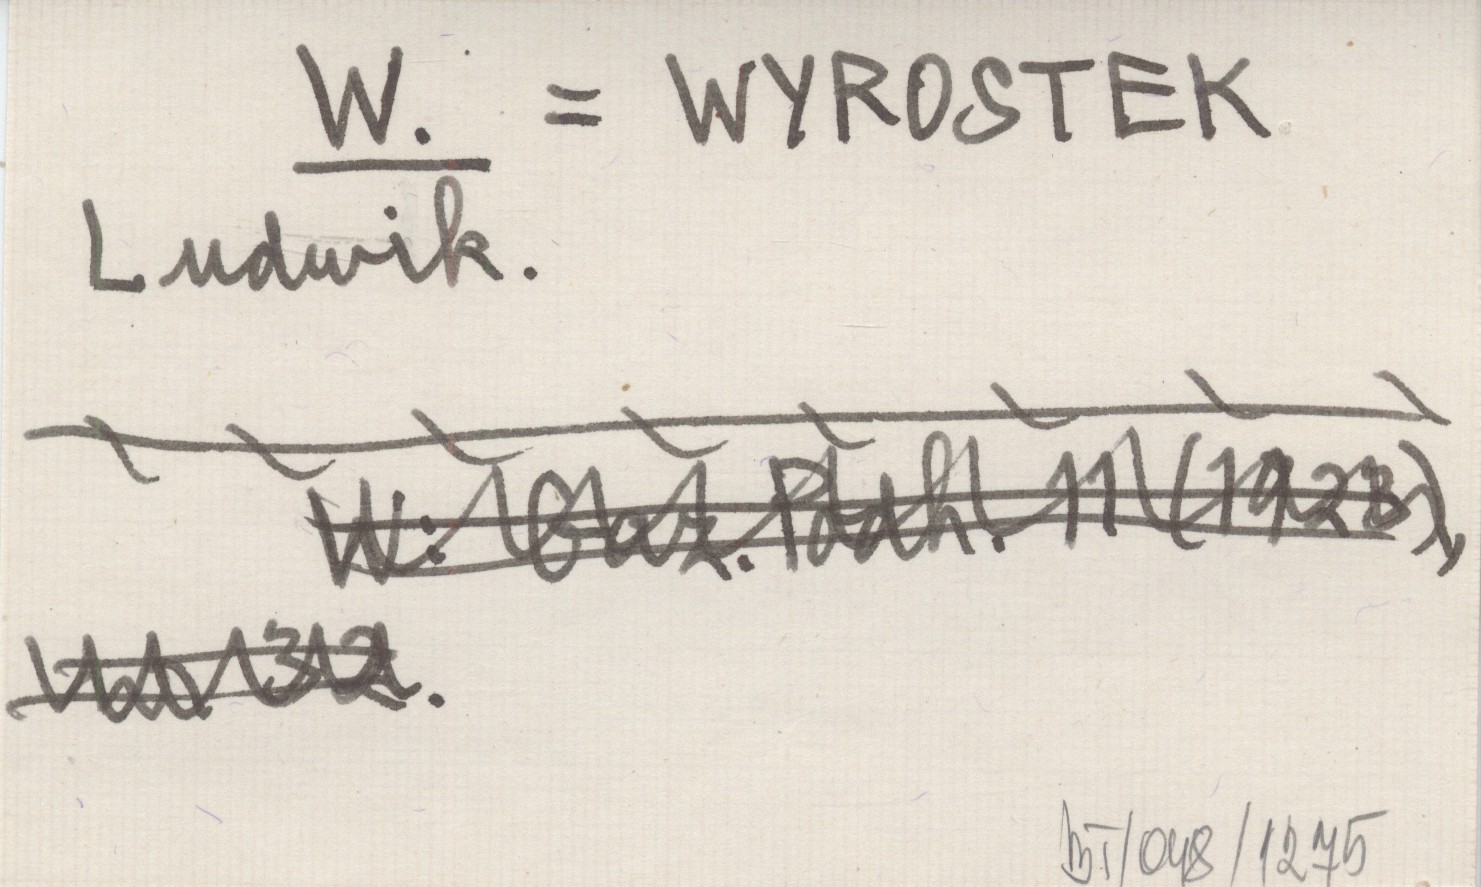 W. = WYROSTEK
Ludwik.
W: Gaz. Podh. 11 (1923),
32.
BT/048/1275